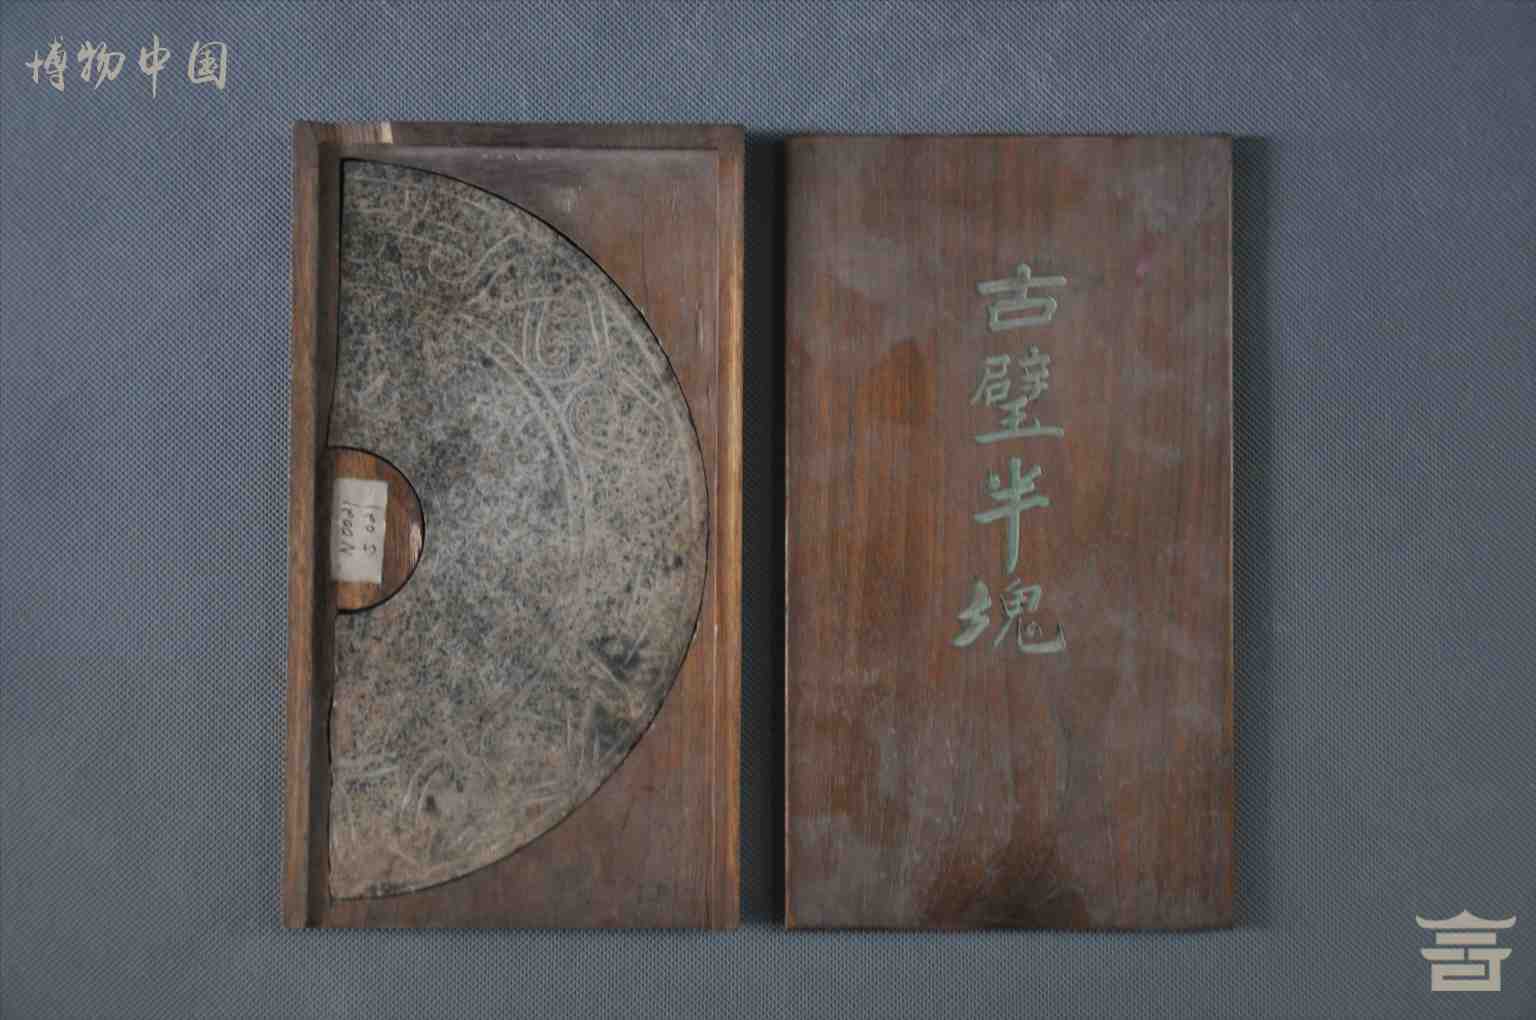 博物中国
古璧半塊